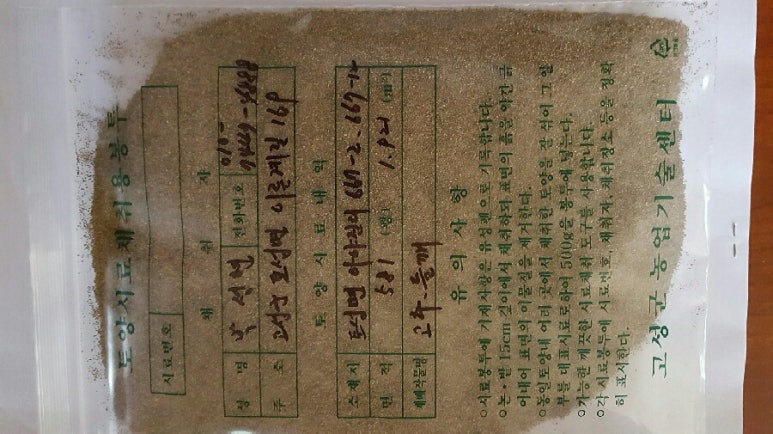 토양시료채취용봉투
시료번호
채 취 자
성 명 전화번호 010-
주 소 고성군 토성면
토 양 시 료 내 역
소재지 토성면 667-2, 669-12
면 적 581 (평) (m²)
재배작물명 고추, 들깨
유 의 사 항
○시료봉투에 기재사항은 유성펜으로 기록합니다.
○논·밭 15cm 깊이에서 채취하되 표면의 흙을 약간 긁
어내어 표면의 이물질을 제거한다.
○동일토양내 여러 곳에서 채취한 토양을 잘 섞어 그 일
부를 대표시료로하여 500g을 봉투에 넣는다.
○가능한 깨끗한 시료채취 도구를 사용합니다.
○각 시료봉투에 시료번호, 채취자, 채취장소 등을 정확
히 표시한다.
고성군농업기술센터